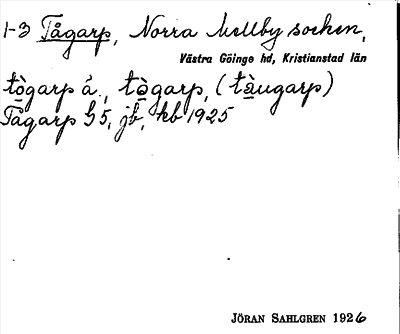 1-3 Tågarp, Norra Mellby socken,
Västra Göinge hd, Kristianstad län
tògarp å, tògarp, (tàugarp)
Tågarp G5, jb, kb 1925
JÖRAN SAHLGREN 1926